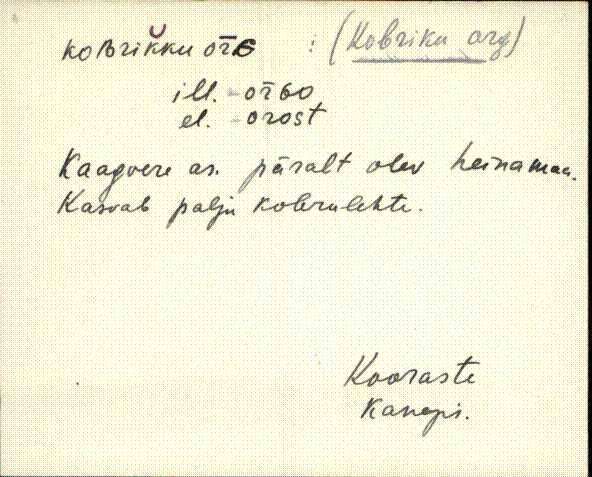 koBrĭkku ōrG : (Kobriku org)
ill. - ōrGo
el. - orost
Kaagvere as. päralt olev heinamaa.
Kasvab palju kobrulehte.
Kooraste
Kanepi.